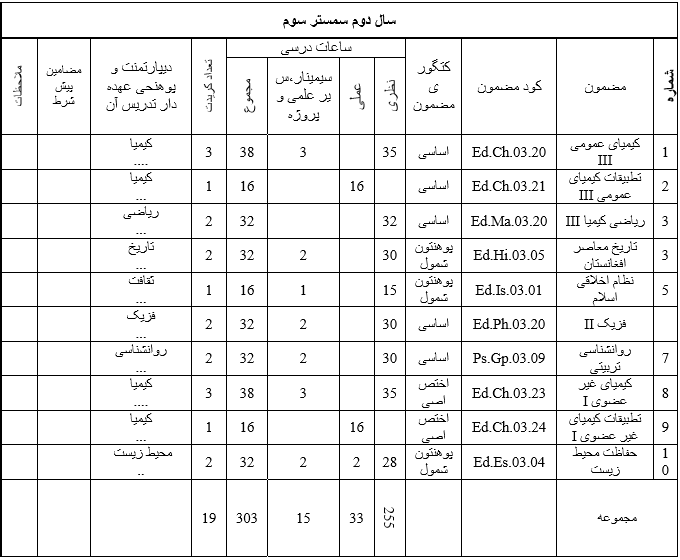 سال دوم سمستر سوم
شماره
مضمون
کود مضمون
کتگور
ی
مضمون
ساعات درسی
نظری
عملی
سیمینار،س
یر علمی و
پروژه
مجموع
تعداد کریدت
دیپارتمنت و
پوهنحی عهده
دار تدریس آن
مضامین
پیش
شرط
ملاحظات
1
کیمیای عمومی
III
Ed.Ch.03.20
اساسی
35
3
38
3
کیمیا
....
2
تطبیقات کیمیای
عمومی III
Ed.Ch.03.21
اساسی
16
16
1
کیمیا
...
3
ریاضی کیمیا III
Ed.Ma.03.20
اساسی
32
32
2
ریاضی
...
3
تاریخ معاصر
افغانستان
Ed.Hi.03.05
پوهنتون
شمول
30
2
32
2
تاریخ
...
5
نظام اخلاقی
اسلام
Ed.Is.03.01
پوهنتون
شمول
15
1
16
1
ثقافت
...
فزیک II
Ed.Ph.03.20
اساسی
30
2
32
2
فزیک
...
7
روانشناسی
تربیتی
Ps.Gp.03.09
اساسی
30
2
32
2
روانشناسی
...
8
کیمیای غیر
عضوی I
Ed.Ch.03.23
اختص
اصی
35
3
38
3
کیمیا
....
9
تطبیقات کیمیای
غیر عضوی I
Ed.Ch.03.24
اختص
اصی
16
16
1
کیمیا
...
1
0
حفاظت محیط
زیست
Ed.Es.03.04
پوهنتون
شمول
28
2
2
32
2
محیط زیست
..
مجموعه
255
33
15
303
19